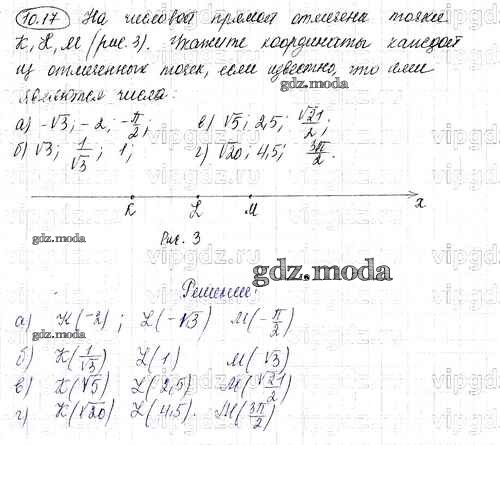 10.17 На числовой прямой отмечены точки
K, L, M (рис. 3). Укажите координаты каждой
из отмеченных точек, если известно, что ими
являются числа:
gdz.moda
а) -√3; -2; -π/2; в) √5; 2,5; √21/2;
б) √3; 1/√3; 1; г) √20; 4,5; 3π/2.
K L M x
gdz.moda Рис. 3
gdz.moda
Решение:
а) K(-2); L(-√3) M(-π/2)
gdz.moda
б) K(1/√3) L(1) M(√3)
в) K(√5) L(2,5) M(√21/2)
г) K(√20) L(4,5). M(3π/2)